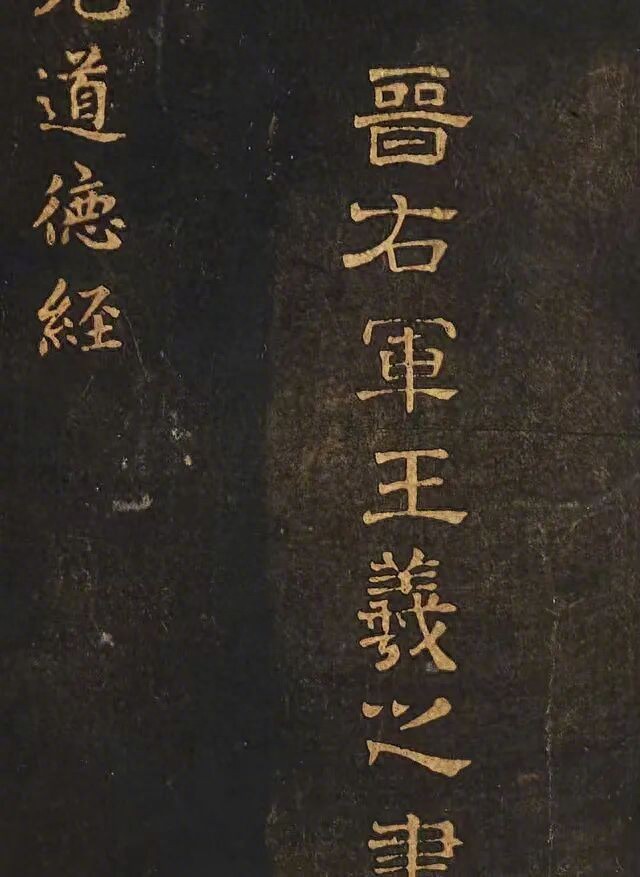 晉右軍王羲之書
道德経